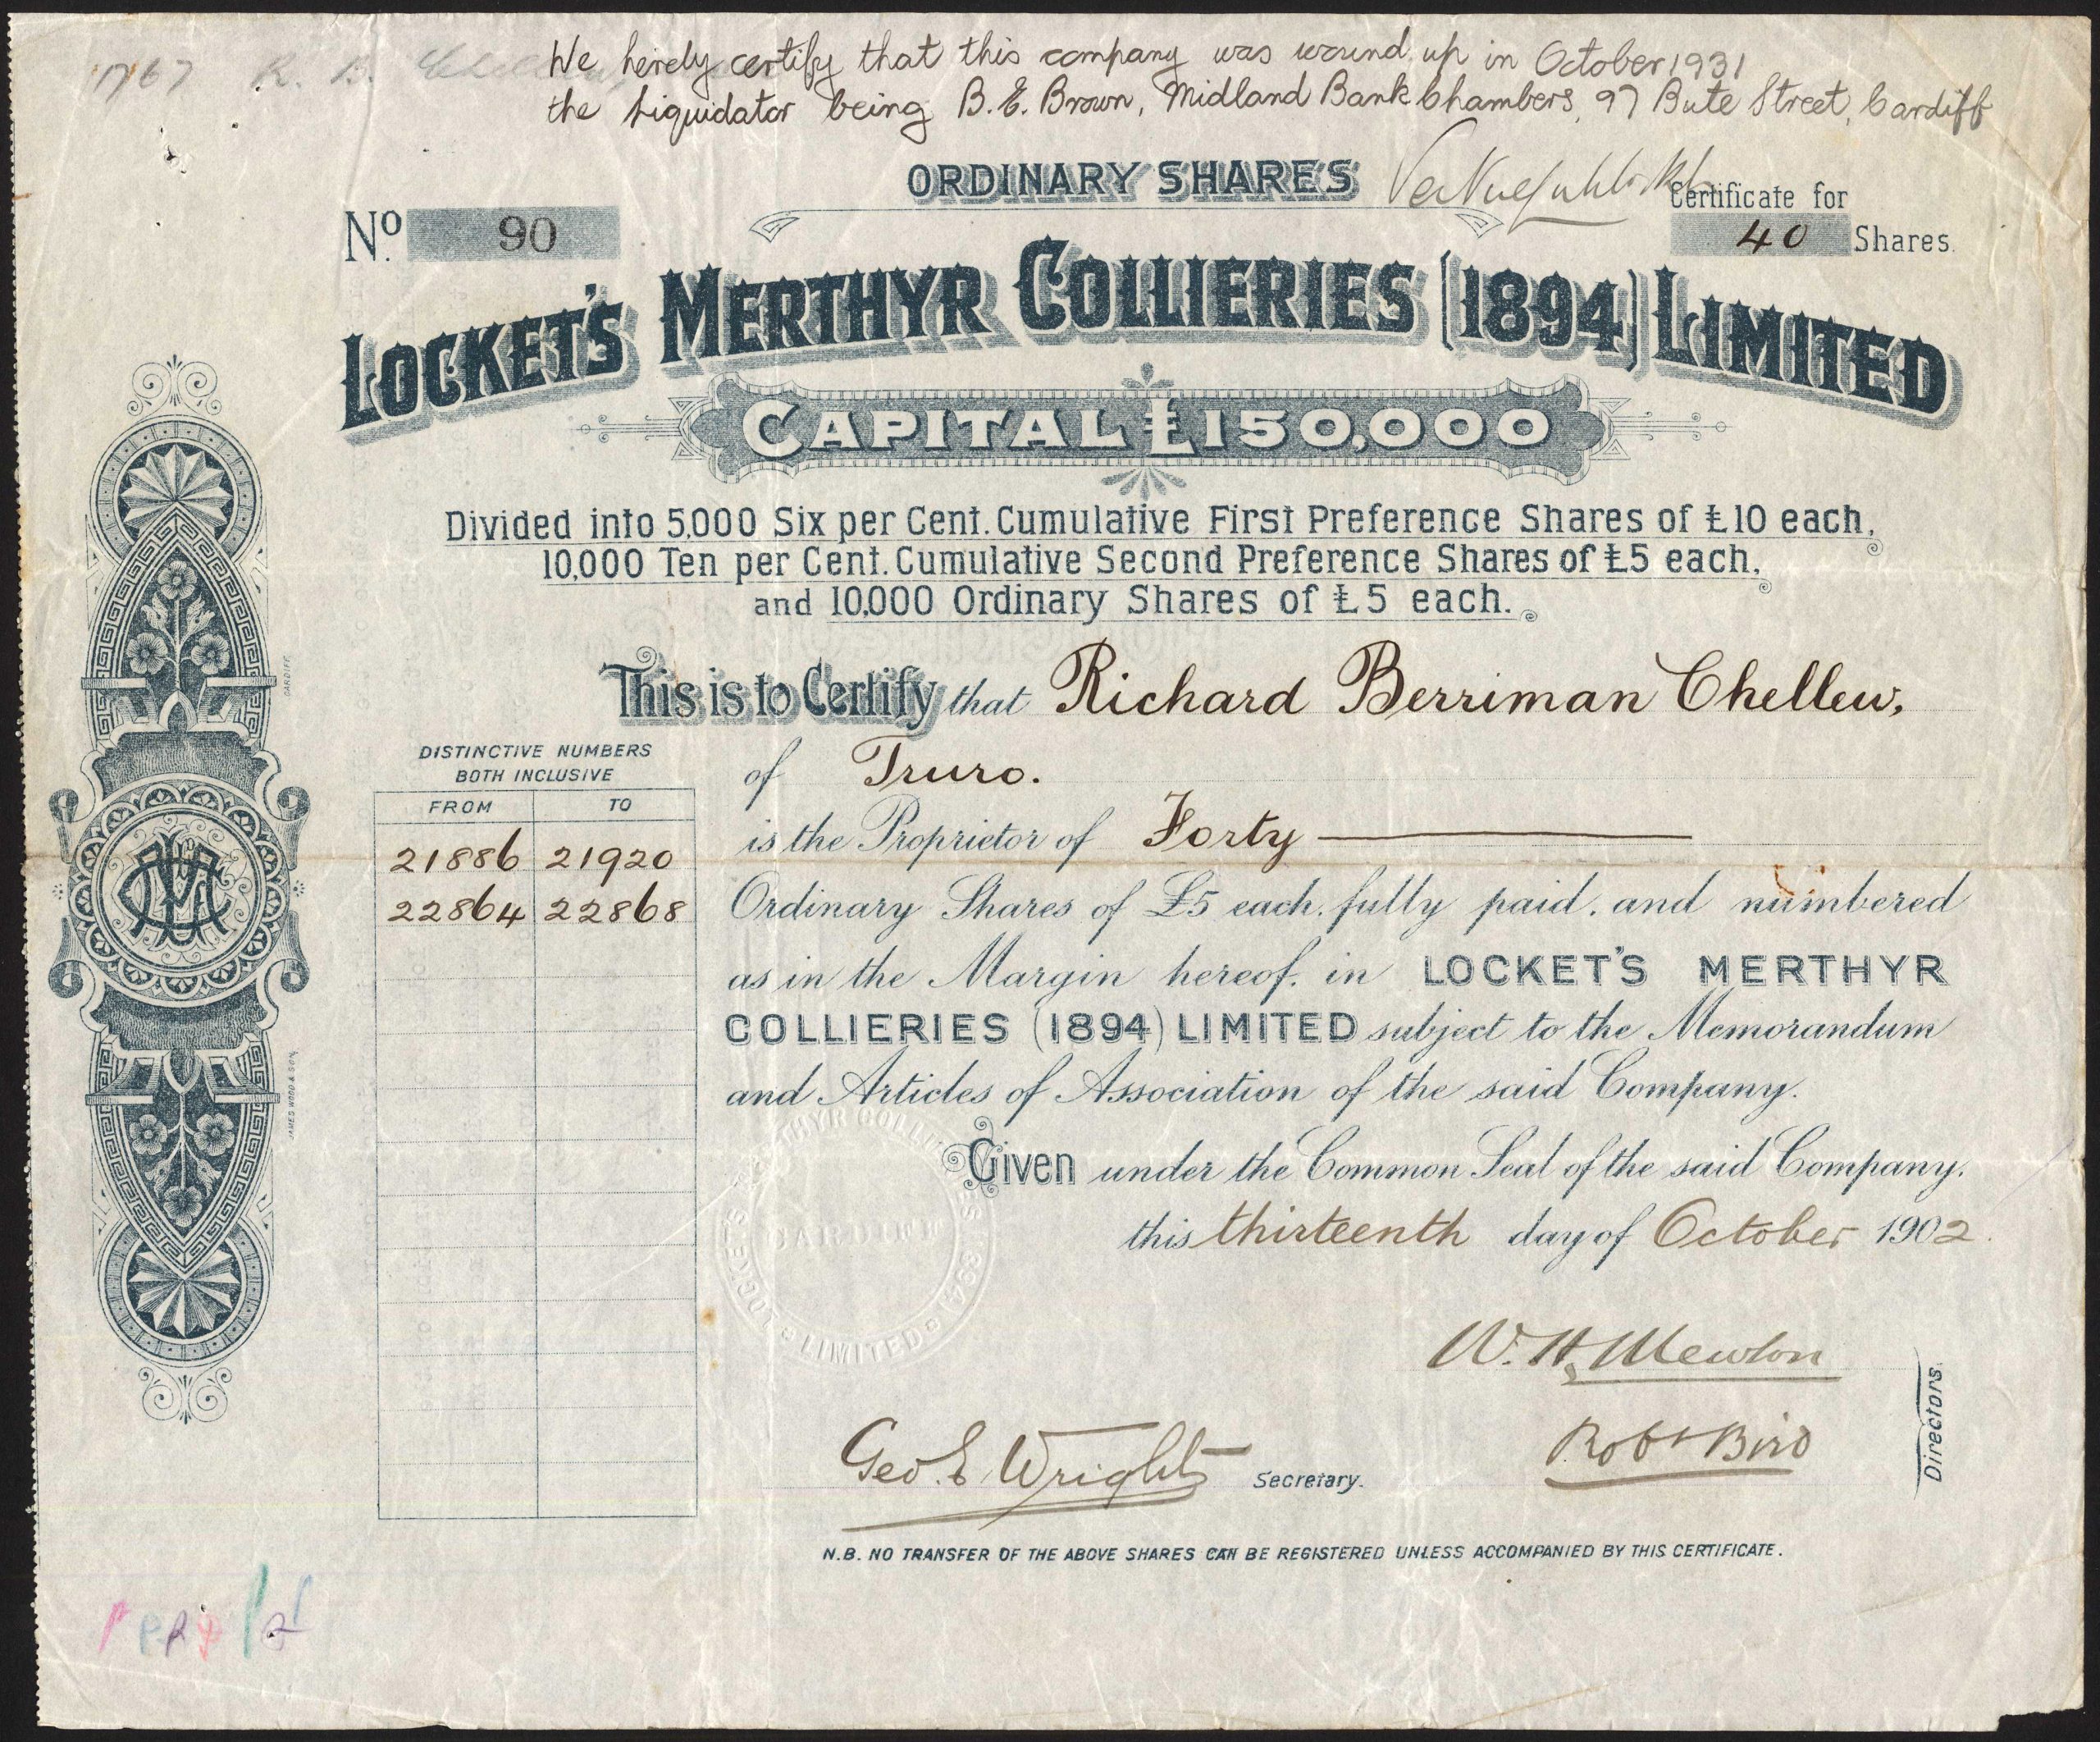 1767 R. B. Chellew
We hereby certify that this company was wound up in October 1931
the liquidator being B. E. Brown, Midland Bank Chambers, 97 Bute Street, Cardiff
ORDINARY SHARES
Certificate for
No. 90
40 Shares.
LOCKET'S MERTHYR COLLIERIES (1894) LIMITED
CAPITAL £150,000
Divided into 5,000 Six per Cent. Cumulative First Preference Shares of £10 each,
10,000 Ten per Cent. Cumulative Second Preference Shares of £5 each,
and 10,000 Ordinary Shares of £5 each.
This is to Certify that Richard Berriman Chellew,
of Truro.
is the Proprietor of Forty
Ordinary Shares of £5 each, fully paid, and numbered
as in the Margin hereof, in LOCKET'S MERTHYR
COLLIERIES (1894) LIMITED subject to the Memorandum
and Articles of Association of the said Company.
DISTINCTIVE NUMBERS
BOTH INCLUSIVE
FROM TO
21886 21920
22864 22868
Given under the Common Seal of the said Company,
this thirteenth day of October 1902.
LOCKET'S MERTHYR COLLIERIES (1894) LIMITED
CARDIFF
W. H. Mewton
Robt Bird
Directors.
Geo. E. Wright Secretary.
N.B. NO TRANSFER OF THE ABOVE SHARES CAN BE REGISTERED UNLESS ACCOMPANIED BY THIS CERTIFICATE.
JAMES WOOD & SON,
CARDIFF